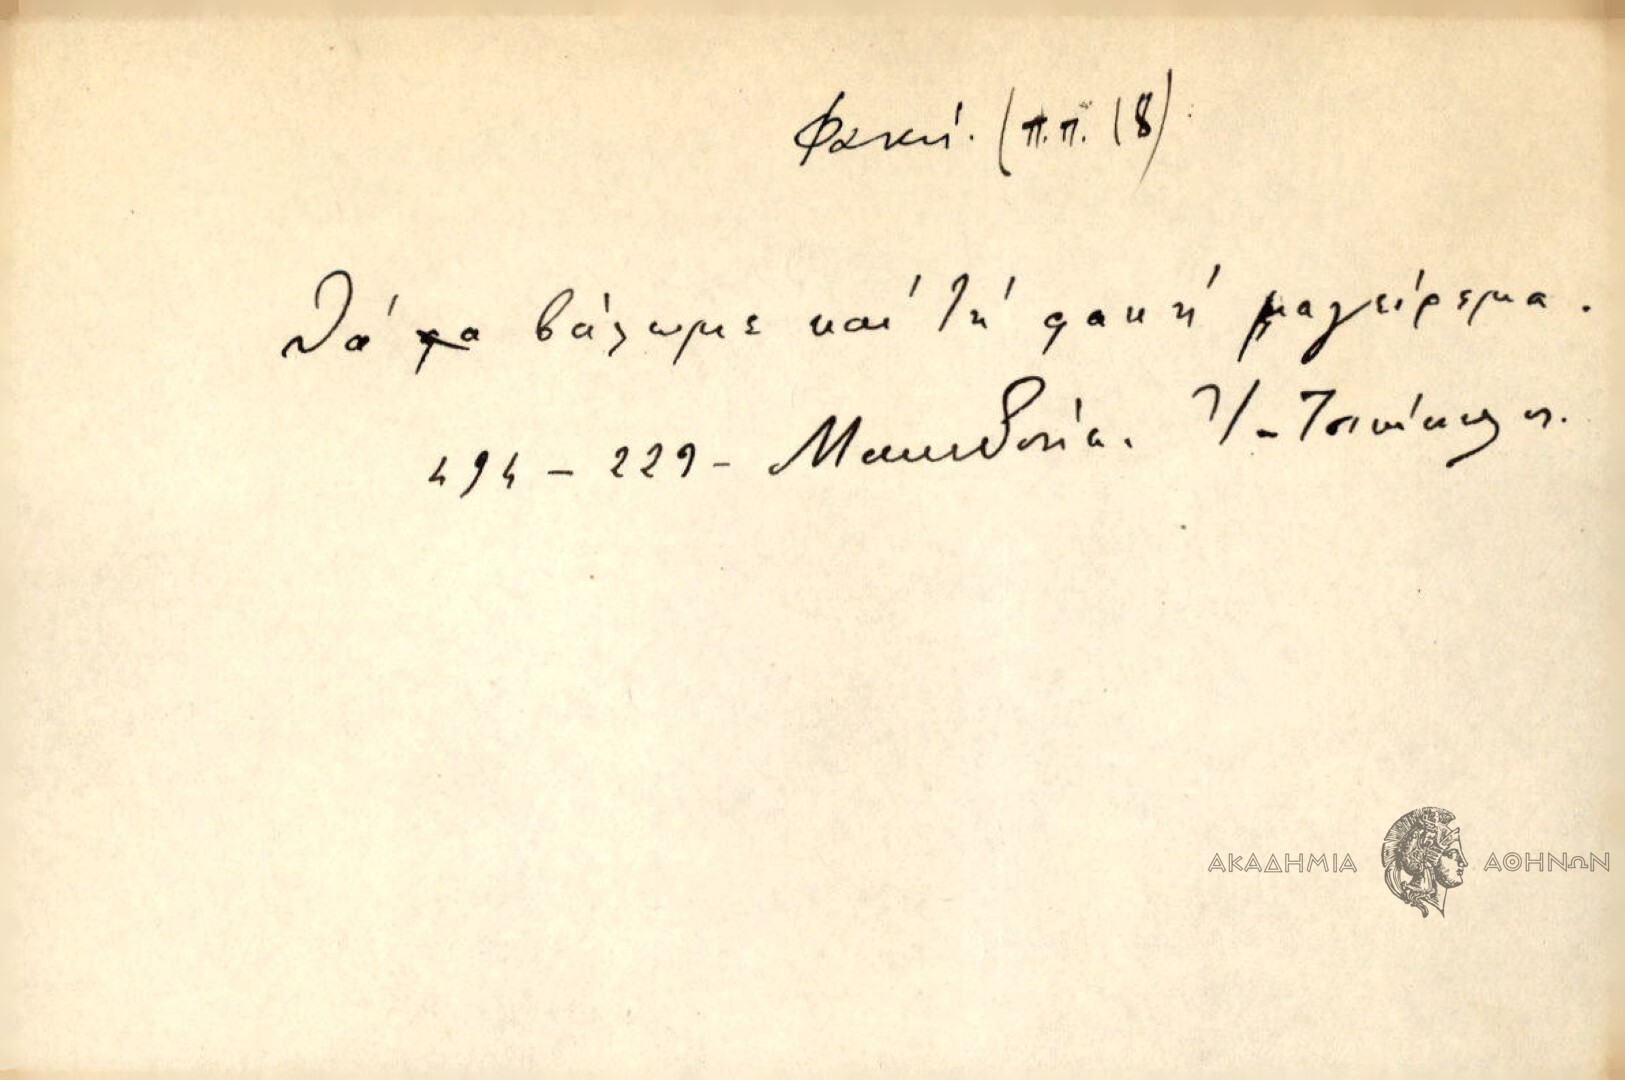 Φακή. (π.π. 18)
Θά τα βάλωμε καί τή φακή μαγείρεμα.
494 - 229 - Μακεδονία.
ΑΚΑΔΗΜΙΑ ΑΘΗΝΩΝ